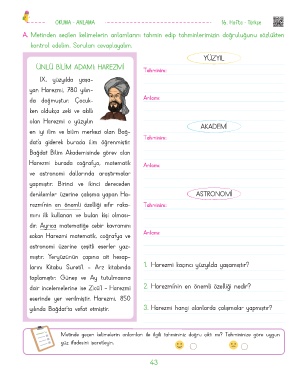 OKUMA - ANLAMA
16. Hafta - Türkçe
A. Metinden seçilen kelimelerin anlamlarını tahmin edip tahminlerimizin doğruluğunu sözlükten
kontrol edelim. Soruları cevaplayalım.
ÜNLÜ BİLİM ADAMI: HAREZMÎ
IX. yüzyılda yaşa-
yan Harezmi, 780 yılın-
da doğmuştur. Çocuk-
ken oldukça zeki ve akıllı
olan Harezmi o yüzyılın
en iyi ilim ve bilim merkezi olan Bağ-
dat'a giderek burada ilim öğrenmiştir.
Bağdat Bilim Akademisinde görev alan
Harezmi burada coğrafya, matematik
ve astronomi dallarında araştırmalar
yapmıştır. Birinci ve ikinci dereceden
denklemler üzerine çalışma yapan Ha-
rezmi'nin en önemli özelliği sıfır raka-
mını ilk kullanan ve bulan kişi olması-
dır. Ayrıca matematiğe cebir kavramını
sokan Harezmi matematik, coğrafya ve
astronomi üzerine çeşitli eserler yaz-
mıştır. Yeryüzünün çapına ait hesap-
larını Kitabu Suretil - Arz kitabında
toplamıştır. Güneş ve Ay tutulmasına
dair incelemelerine ise Zîcü'l - Harezmi
eserinde yer verilmiştir. Harezmi, 850
yılında Bağdat'ta vefat etmiştir.
YÜZYIL
Tahminim:
Anlamı:
AKADEMİ
Tahminim:
Anlamı:
ASTRONOMİ
Tahminim:
Anlamı:
1. Harezmi kaçıncı yüzyılda yaşamıştır?
2. Harezmi'nin en önemli özelliği nedir?
3. Harezmi hangi alanlarda çalışmalar yapmıştır?
Metinde geçen kelimelerin anlamları ile ilgili tahminimiz doğru çıktı mı? Tahminimize göre uygun
yüz ifadesini işaretleyin.
43